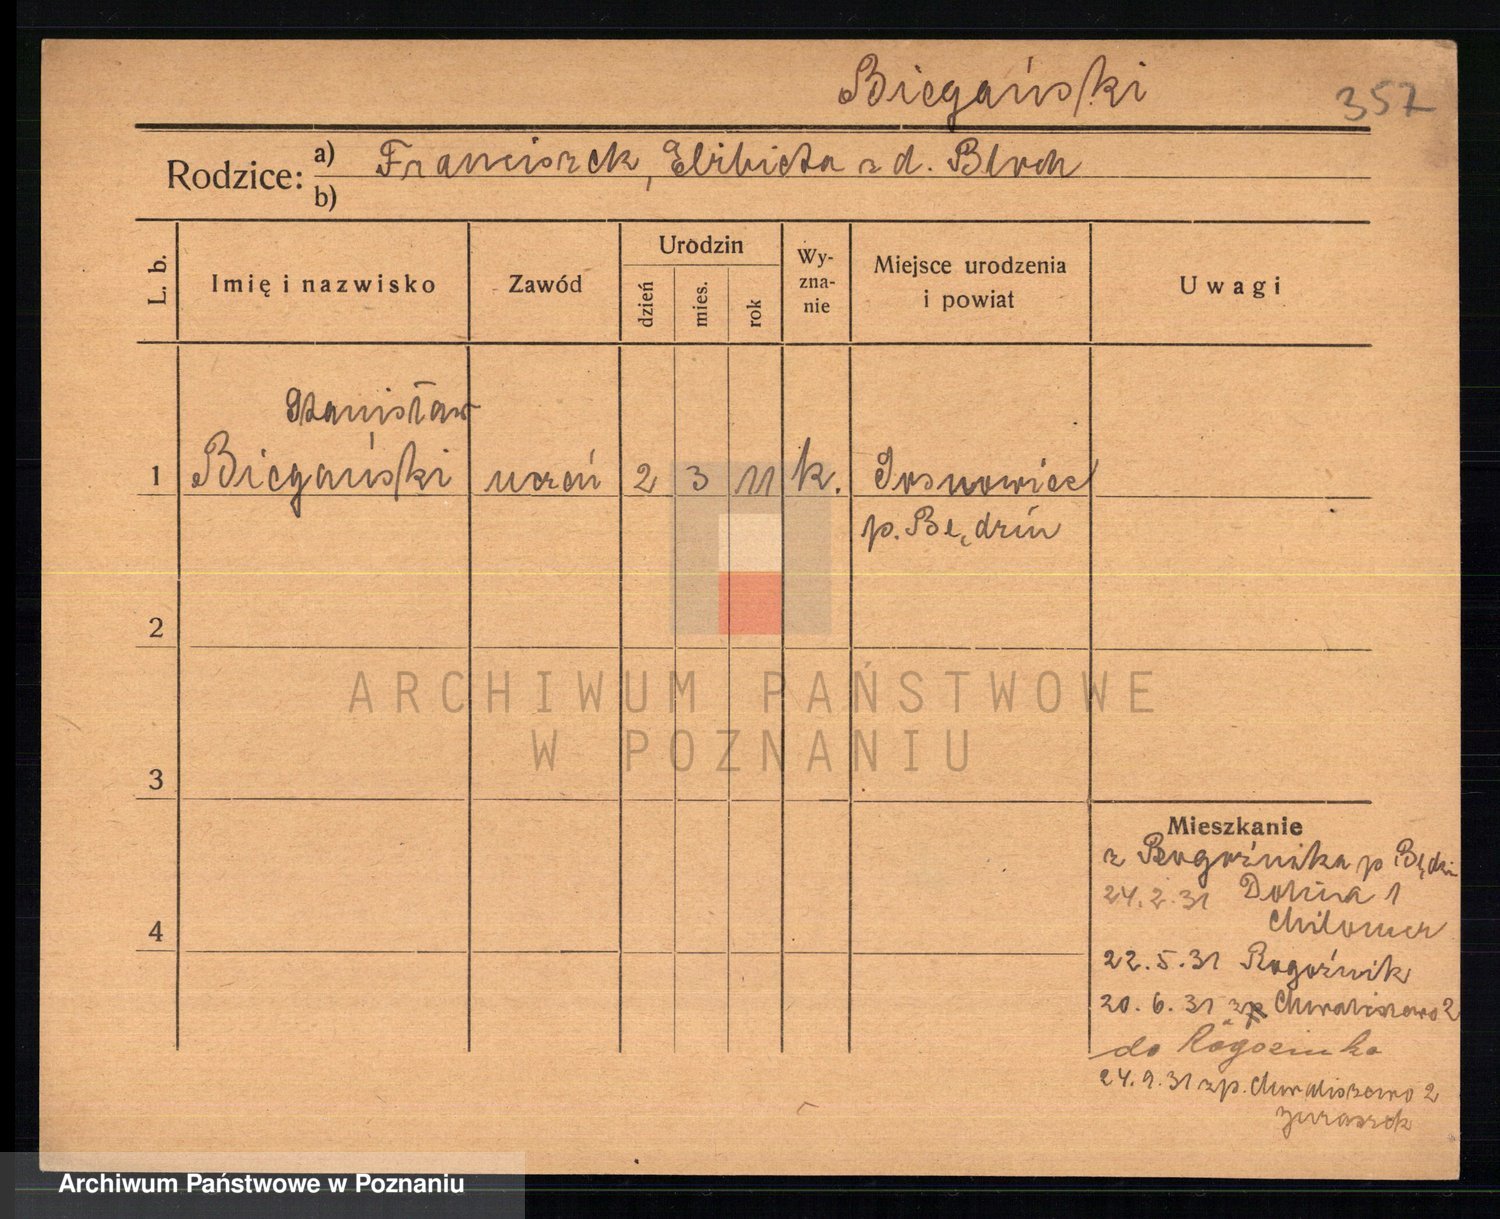 Biegański
357
Rodzice: a) Franciszek, Elżbieta z d. Bloch
b)
L. b.
Imię i nazwisko
Zawód
Urodzin
dzień
mies.
rok
Wy-
zna-
nie
Miejsce urodzenia
i powiat
Uwagi
Stanisław
1 Biegański uczeń 2 3 11 k. Sosnowiec
p. Będzin
2
3
4
Mieszkanie
z Rogoźnika p Będzin
24.2.31 Dolina 1
22.5.31 Rogoźnik
20.6.31 zp Chwaliszewo 2
do Rogoźnika
24.9.31 zp. Chwaliszewo 2
ARCHIWUM PAŃSTWOWE
W POZNANIU
Archiwum Państwowe w Poznaniu